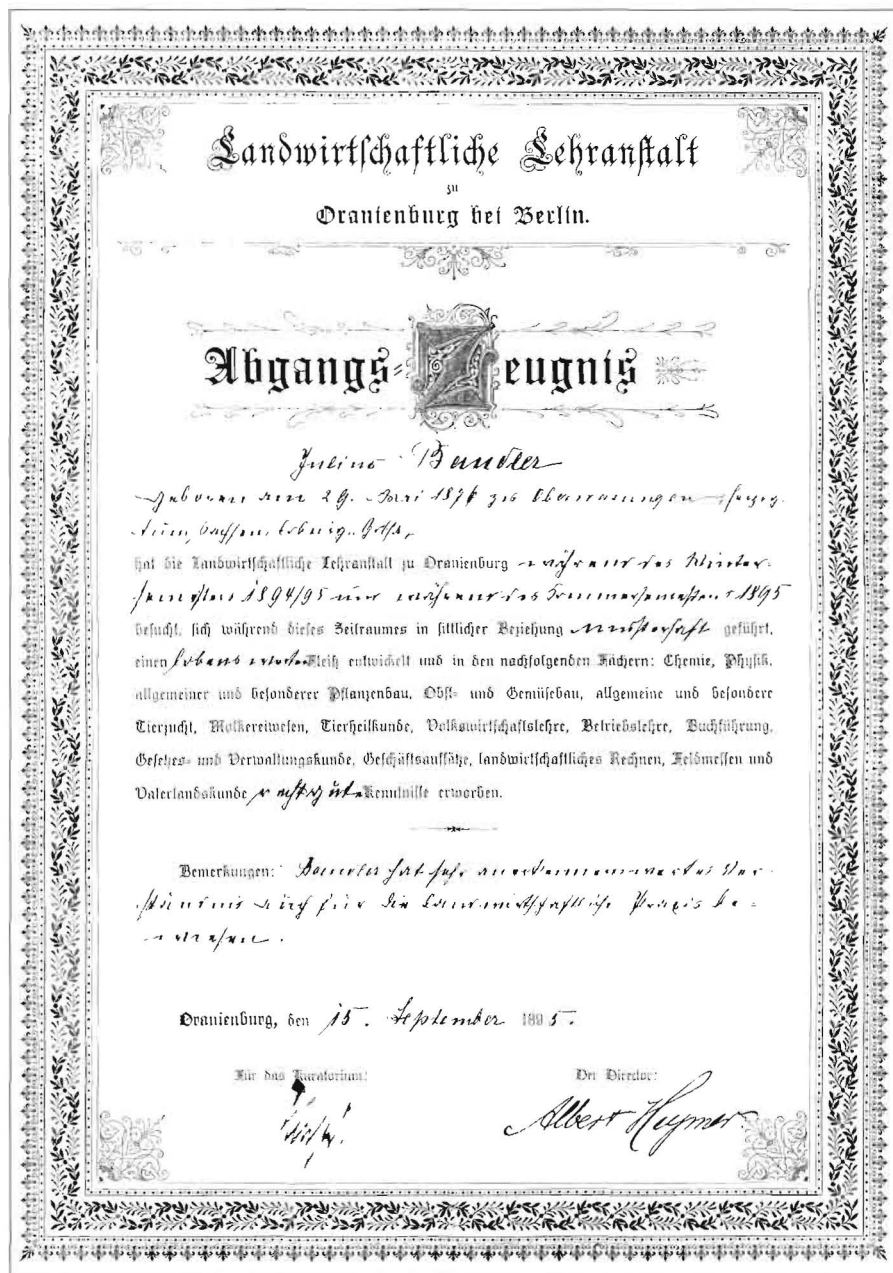 Landwirtschaftliche Lehranstalt
zu
Oranienburg bei Berlin.
Abgangs-Zeugnis
Julius
geboren am 29. 187 zu
hat die Landwirtschaftliche Lehranstalt zu Oranienburg während des Winter-
semesters 1894/95 und während des Sommersemesters 1895
besucht, sich während dieses Zeitraumes in sittlicher Beziehung musterhaft geführt,
einen lobenswerten Fleiß entwickelt und in den nachfolgenden Fächern: Chemie, Physik,
allgemeiner und besonderer Pflanzenbau, Obst- und Gemüsebau, allgemeine und besondere
Tierzucht, Molkereiwesen, Tierheilkunde, Volkswirtschaftslehre, Betriebslehre, Buchführung,
Gesetzes- und Verwaltungskunde, Geschäftsaufsätze, landwirtschaftliches Rechnen, Feldmessen und
Vaterlandskunde recht gute Kenntnisse erworben.
Bemerkungen: hat sehr anerkennenswertes Ver-
ständnis auch für die landwirtschaftliche Praxis be-
wiesen.
Oranienburg, den 15. September 1895.
Für das Kuratorium: Der Director:
Albert